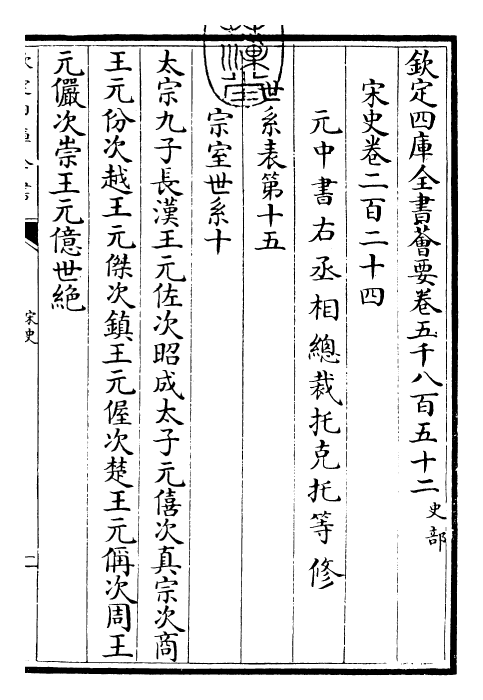 欽定四庫全書薈要卷五千八百五十二 史部
宋史卷二百二十四
元中書右丞相總裁托克托等修
世系表第十五
宗室世系十
太宗九子長漢王元佐次昭成太子元僖次真宗次商
王元份次越王元傑次鎮王元偓次楚王元偁次周王
元儼次崇王元億世絶
宋史